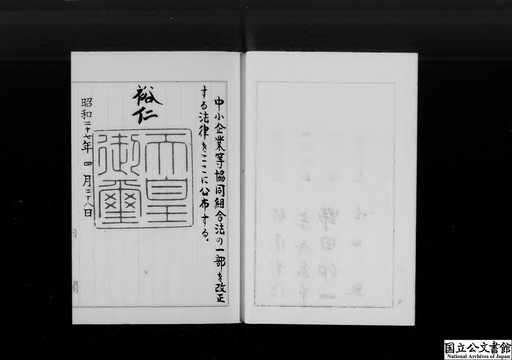 中小企業等協同組合法の一部を改正
する法律をここに公布する。
裕仁
天皇
御璽
昭和二十七年四月二十八日
内閣
国立公文書館
National Archives of Japan